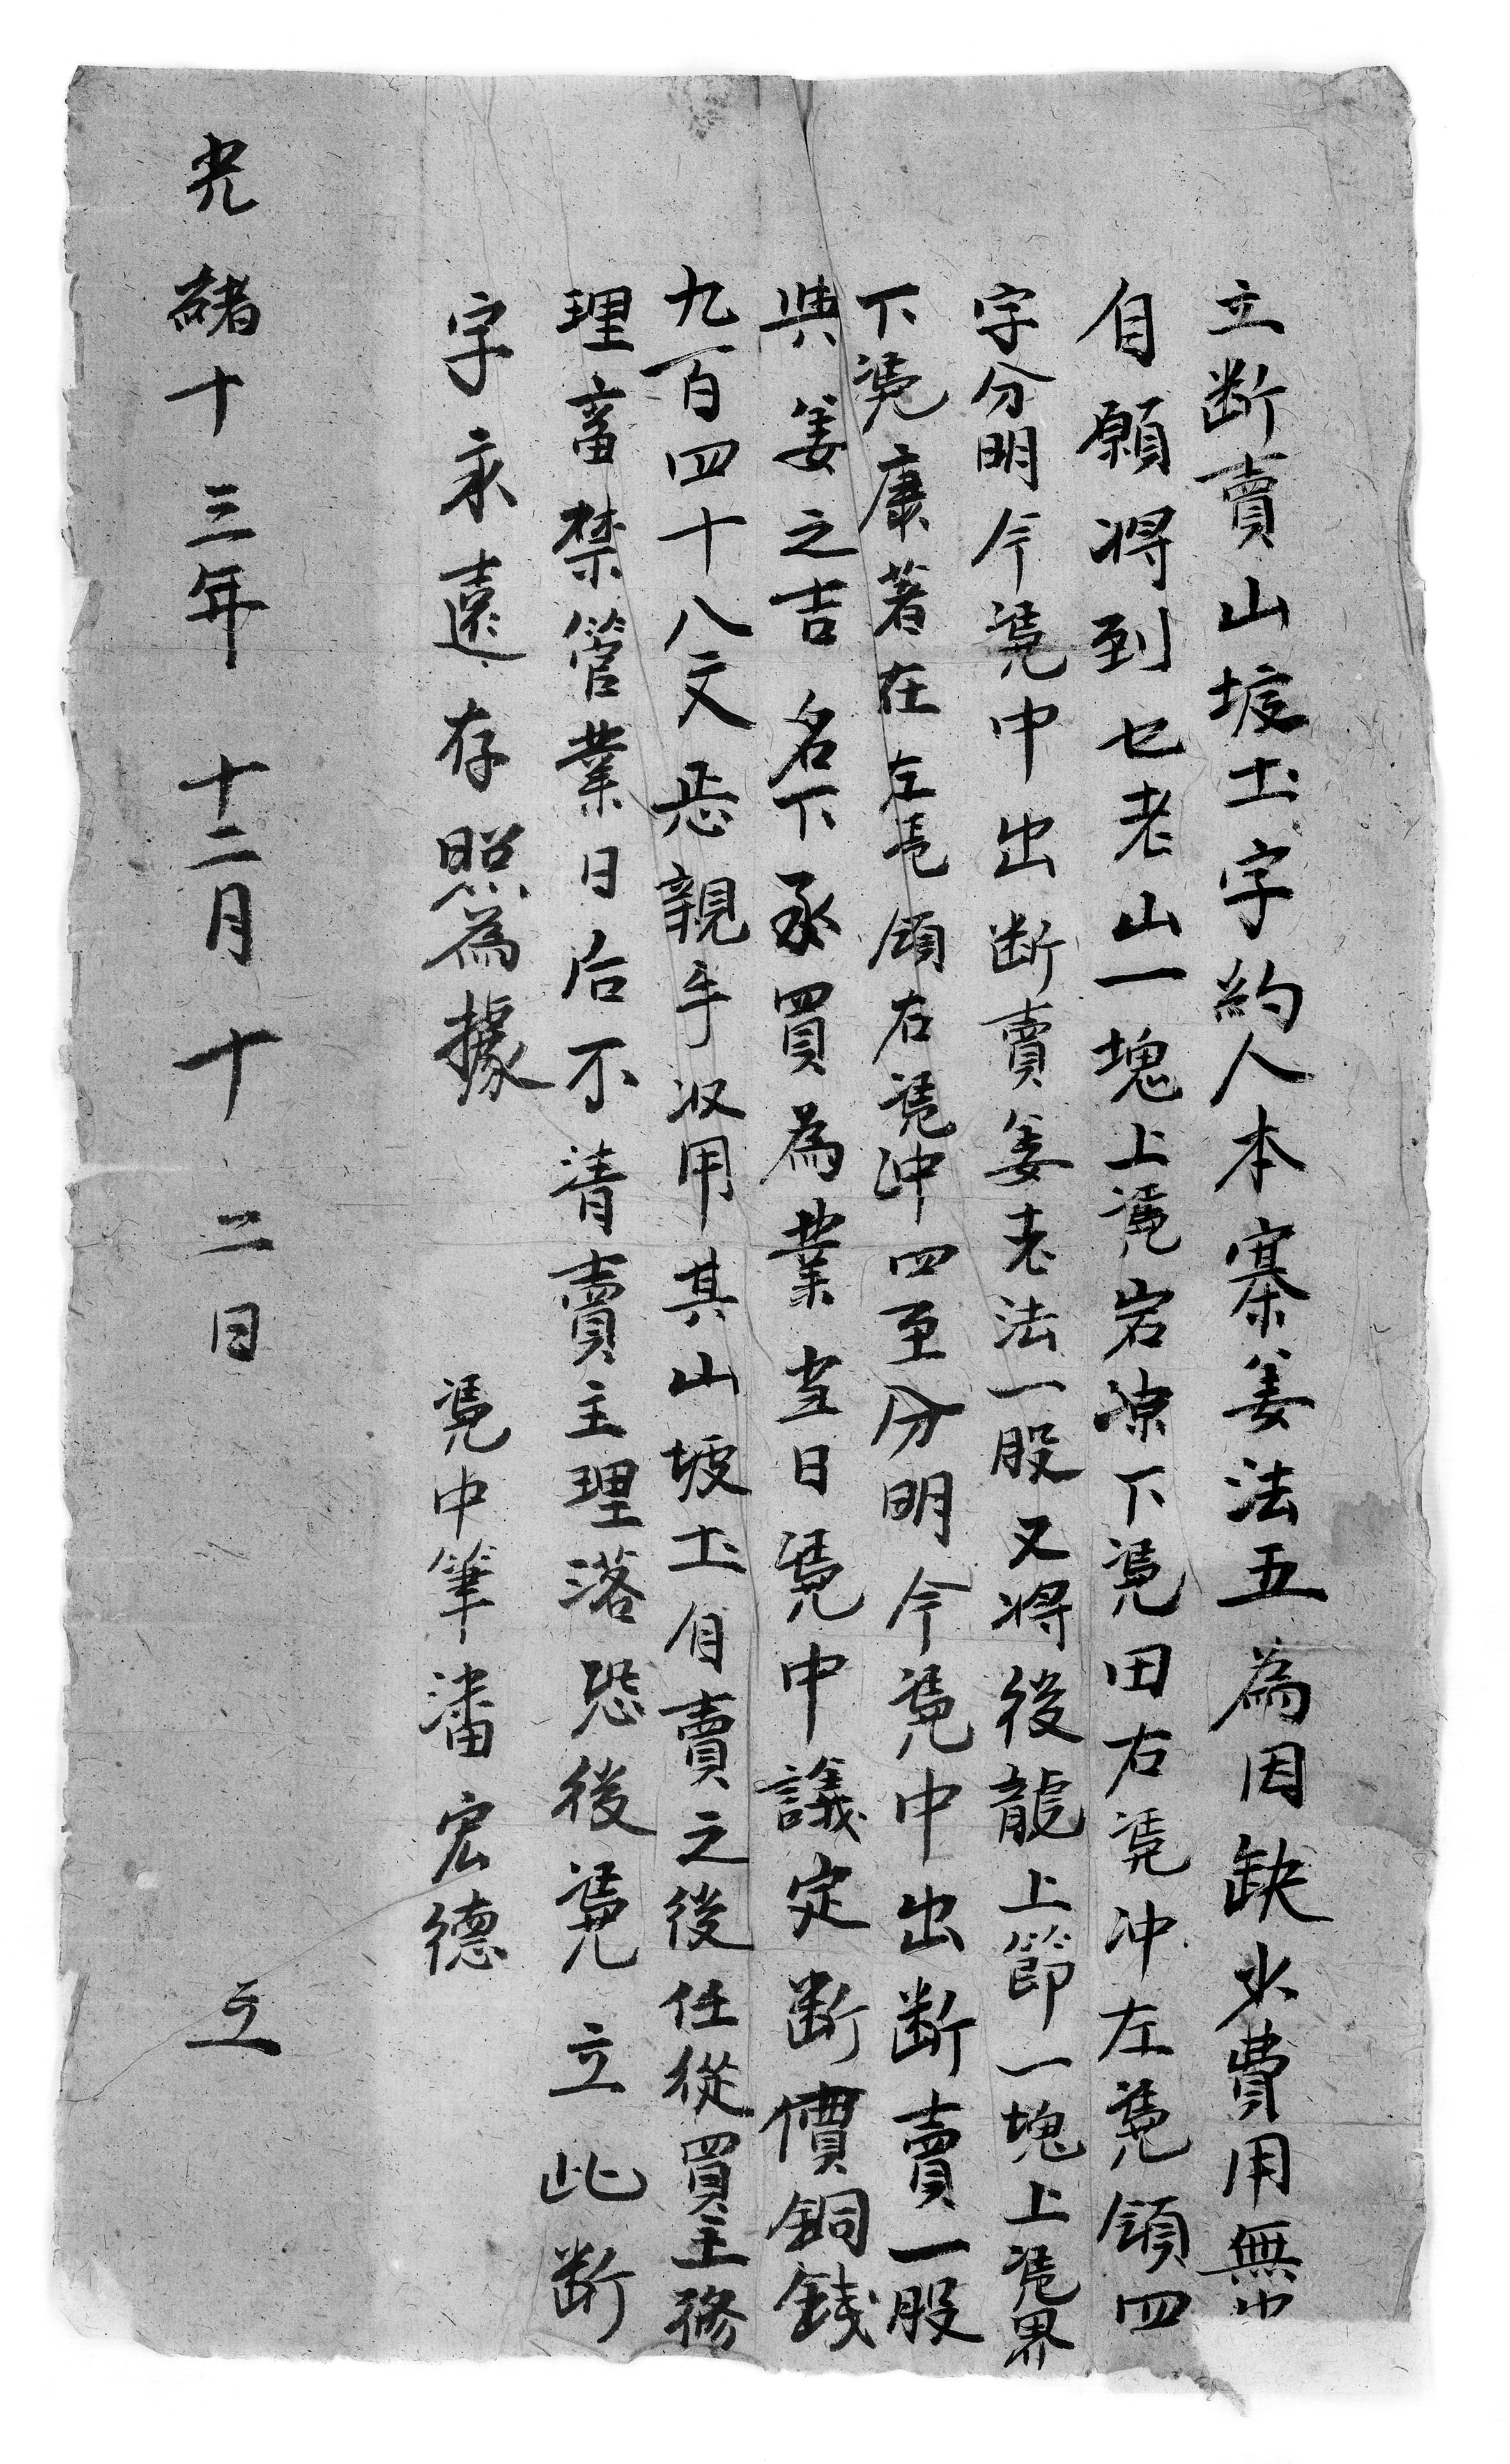 立断賣山坡土字約人本寨姜法五為因缺少費用無
自願将到乜老山一塊上凴岩凉下凴田右凴冲左凴領四
字分明今凴中出断賣姜老法一股又将後龍上節一塊上凴界
下凴康著在左凴領右凴冲四至分明今凴中出断賣一股
與姜之吉名下承買為業當日凴中議定断價銅錢
九百四十八文恁親手収用其山坡土自賣之後任從買主修
理畜禁管業日后不清賣主理落恐後凴立此断
字永遠存照為據
凴中筆潘宏德
光緒十三年十二月十二日立